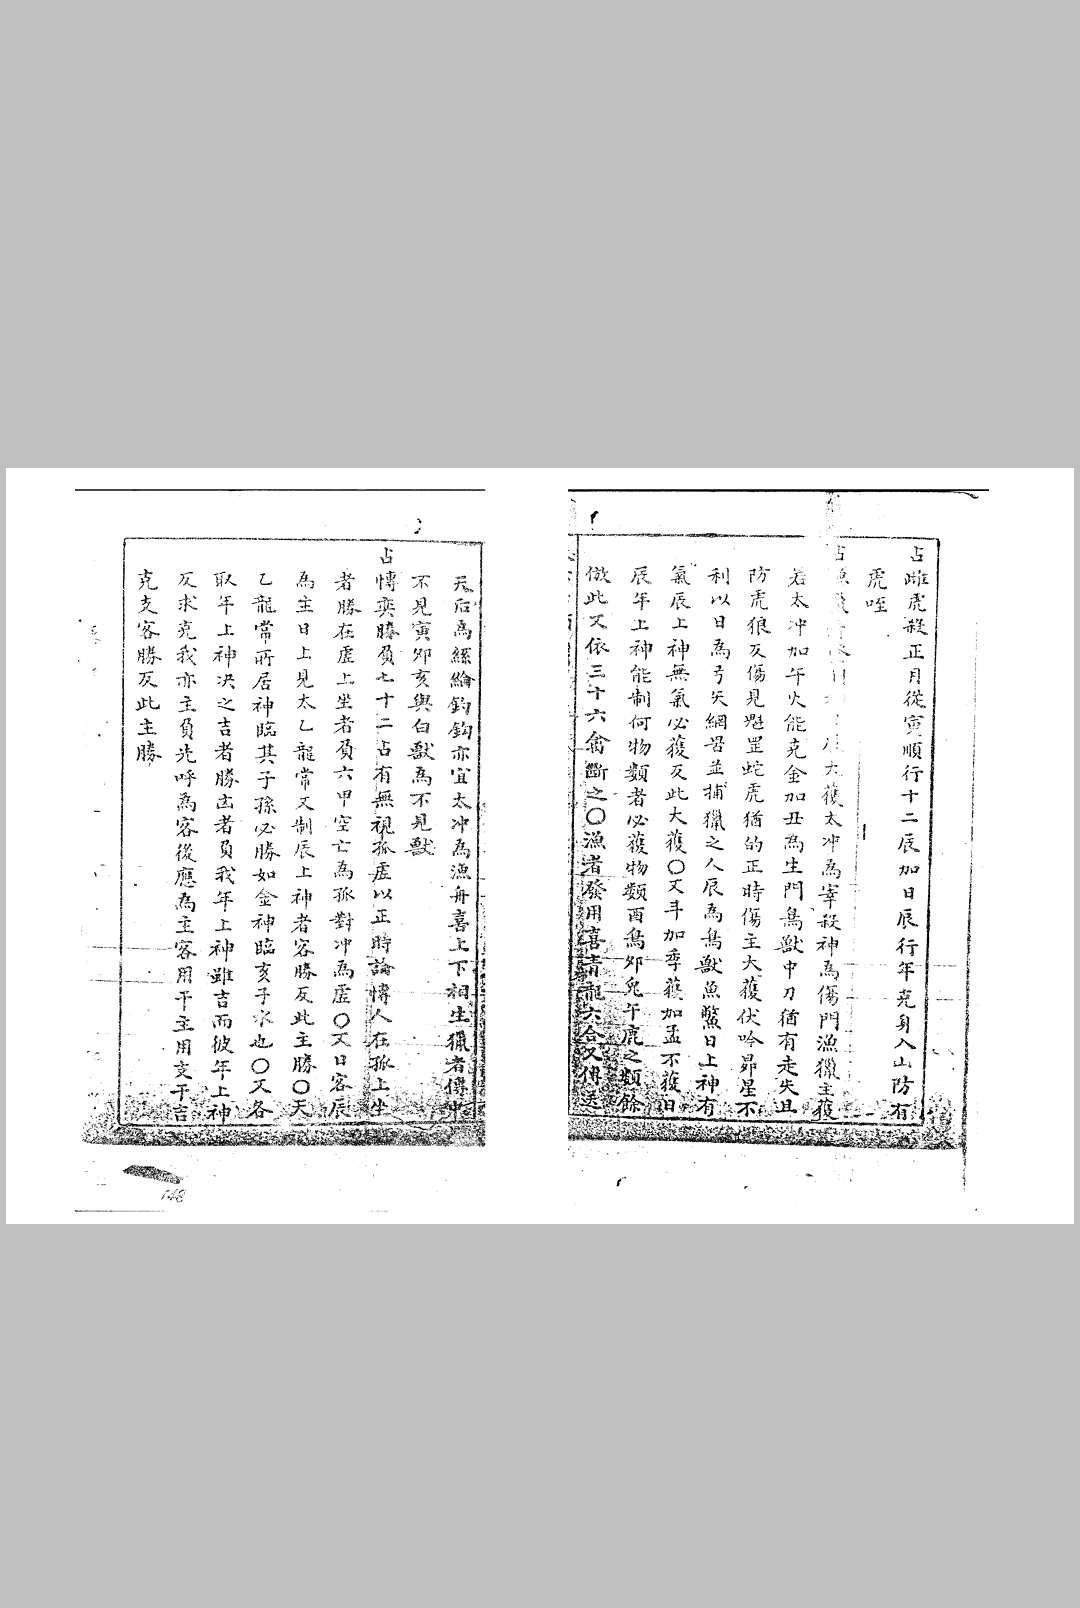 占雌虎殺正月從寅順行十二辰加日辰行年克身入山防有
虎咥
占漁獵 大獲太冲為宰殺神為傷門漁獵主獲
若太冲加午火能克金加丑為生門鳥獸中刀猶有走失且
防虎狼反傷見魁罡蛇虎猶的正時傷主大獲伏吟昴星不
利以日為弓矢網罟並捕獵之人辰為鳥獸魚鱉日上神有
氣辰上神無氣必獲反此大獲〇又斗加季獲加孟不獲日
辰年上神能制何物類者必獲物類酉鳥卯兔午鹿之類餘
倣此又依三十六禽斷之〇漁者發用喜青龍六合又傳送
天后為絲綸鈞鈎亦宜太冲為漁舟喜上下相生獵者傳中
不見寅卯亥與白獸為不見獸
占博奕勝負七十二占有無視孤虛以正時論博人在孤上坐
者勝在虛上坐者負六甲空亡為孤對冲為虛〇又日客辰
為主日上見太乙龍常又制辰上神者客勝反此主勝〇天
乙龍常所居神臨其子孫必勝如金神臨亥子水也〇又各
取年上神决之吉者勝凶者負我年上神雖吉而彼年上神
反求克我亦主負先呼為客後應為主客用干主用支干吉
克支客勝反此主勝
148